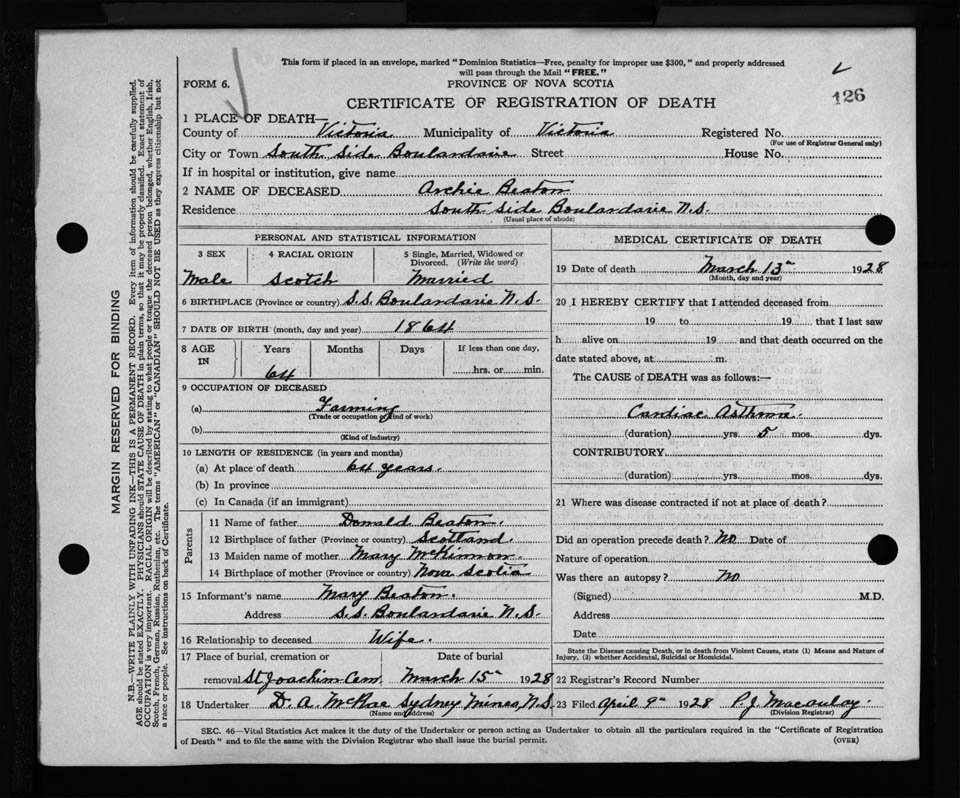 This form if placed in an envelope, marked "Dominion Statistics—Free, penalty for improper use $300," and properly addressed
will pass through the Mail "FREE."
FORM 6.
PROVINCE OF NOVA SCOTIA
126
CERTIFICATE OF REGISTRATION OF DEATH
1 PLACE OF DEATH—
County of Victoria Municipality of Victoria Registered No.
(For use of Registrar General only)
City or Town South Side Boulardarie Street House No.
If in hospital or institution, give name
2 NAME OF DECEASED Archie Beaton
Residence South Side Boulardarie N.S.
(Usual place of abode)
PERSONAL AND STATISTICAL INFORMATION
3 SEX 4 RACIAL ORIGIN 5 Single, Married, Widowed or Divorced. (Write the word)
Male Scotch Married
6 BIRTHPLACE (Province or country) S.S. Boulardarie N.S.
7 DATE OF BIRTH (month, day and year) 1864
8 AGE IN Years Months Days If less than one day,
64 hrs. or min.
9 OCCUPATION OF DECEASED
(a) Farming
(Trade or occupation or kind of work)
(b)
(Kind of industry)
10 LENGTH OF RESIDENCE (in years and months)
(a) At place of death 64 years.
(b) In province
(c) In Canada (if an immigrant)
Parents
11 Name of father Donald Beaton.
12 Birthplace of father (Province or country) Scotland.
13 Maiden name of mother Mary McKinnon.
14 Birthplace of mother (Province or country) Nova Scotia
15 Informant's name Mary Beaton.
Address S.S. Boulardarie N.S.
16 Relationship to deceased Wife.
17 Place of burial, cremation or Date of burial
removal St Joachim Cem March 15th 1928
18 Undertaker D. A. McRae Sydney Mines, N.S.
(Name and address)
MEDICAL CERTIFICATE OF DEATH
19 Date of death March 13th 1928
(Month, day and year)
20 I HEREBY CERTIFY that I attended deceased from
19 to 19 that I last saw
h alive on 19 and that death occurred on the
date stated above, at m.
The CAUSE of DEATH was as follows:—
Cardiac Asthma.
(duration) yrs. 5 mos. dys.
CONTRIBUTORY
(duration) yrs. mos. dys.
21 Where was disease contracted if not at place of death?
Did an operation precede death? No Date of
Nature of operation
Was there an autopsy? No
(Signed) M.D.
Address
Date
State the Disease causing Death, or in death from Violent Causes, state (1) Means and Nature of
Injury, (2) whether Accidental, Suicidal or Homicidal.
22 Registrar's Record Number
23 Filed April 9th 1928 P. J. Macaulay
(Division Registrar)
SEC. 46—Vital Statistics Act makes it the duty of the Undertaker or person acting as Undertaker to obtain all the particulars required in the "Certificate of Registration
of Death" and to file the same with the Division Registrar who shall issue the burial permit.
(OVER)
MARGIN RESERVED FOR BINDING
N.B.—WRITE PLAINLY WITH UNFADING INK—THIS IS A PERMANENT RECORD. Every item of information should be carefully supplied.
AGE should be stated EXACTLY. PHYSICIANS should STATE CAUSE OF DEATH in plain terms, so that it may be properly classified. Exact statement of
OCCUPATION is very important. RACIAL ORIGIN will be described by stating to what people or tongue the deceased person belonged, whether English, Irish,
Scotch, French, German, Russian, Ruthenian, etc. The terms "AMERICAN" or "CANADIAN" SHOULD NOT BE USED as they express citizenship but not
a race or people. See instructions on back of Certificate.